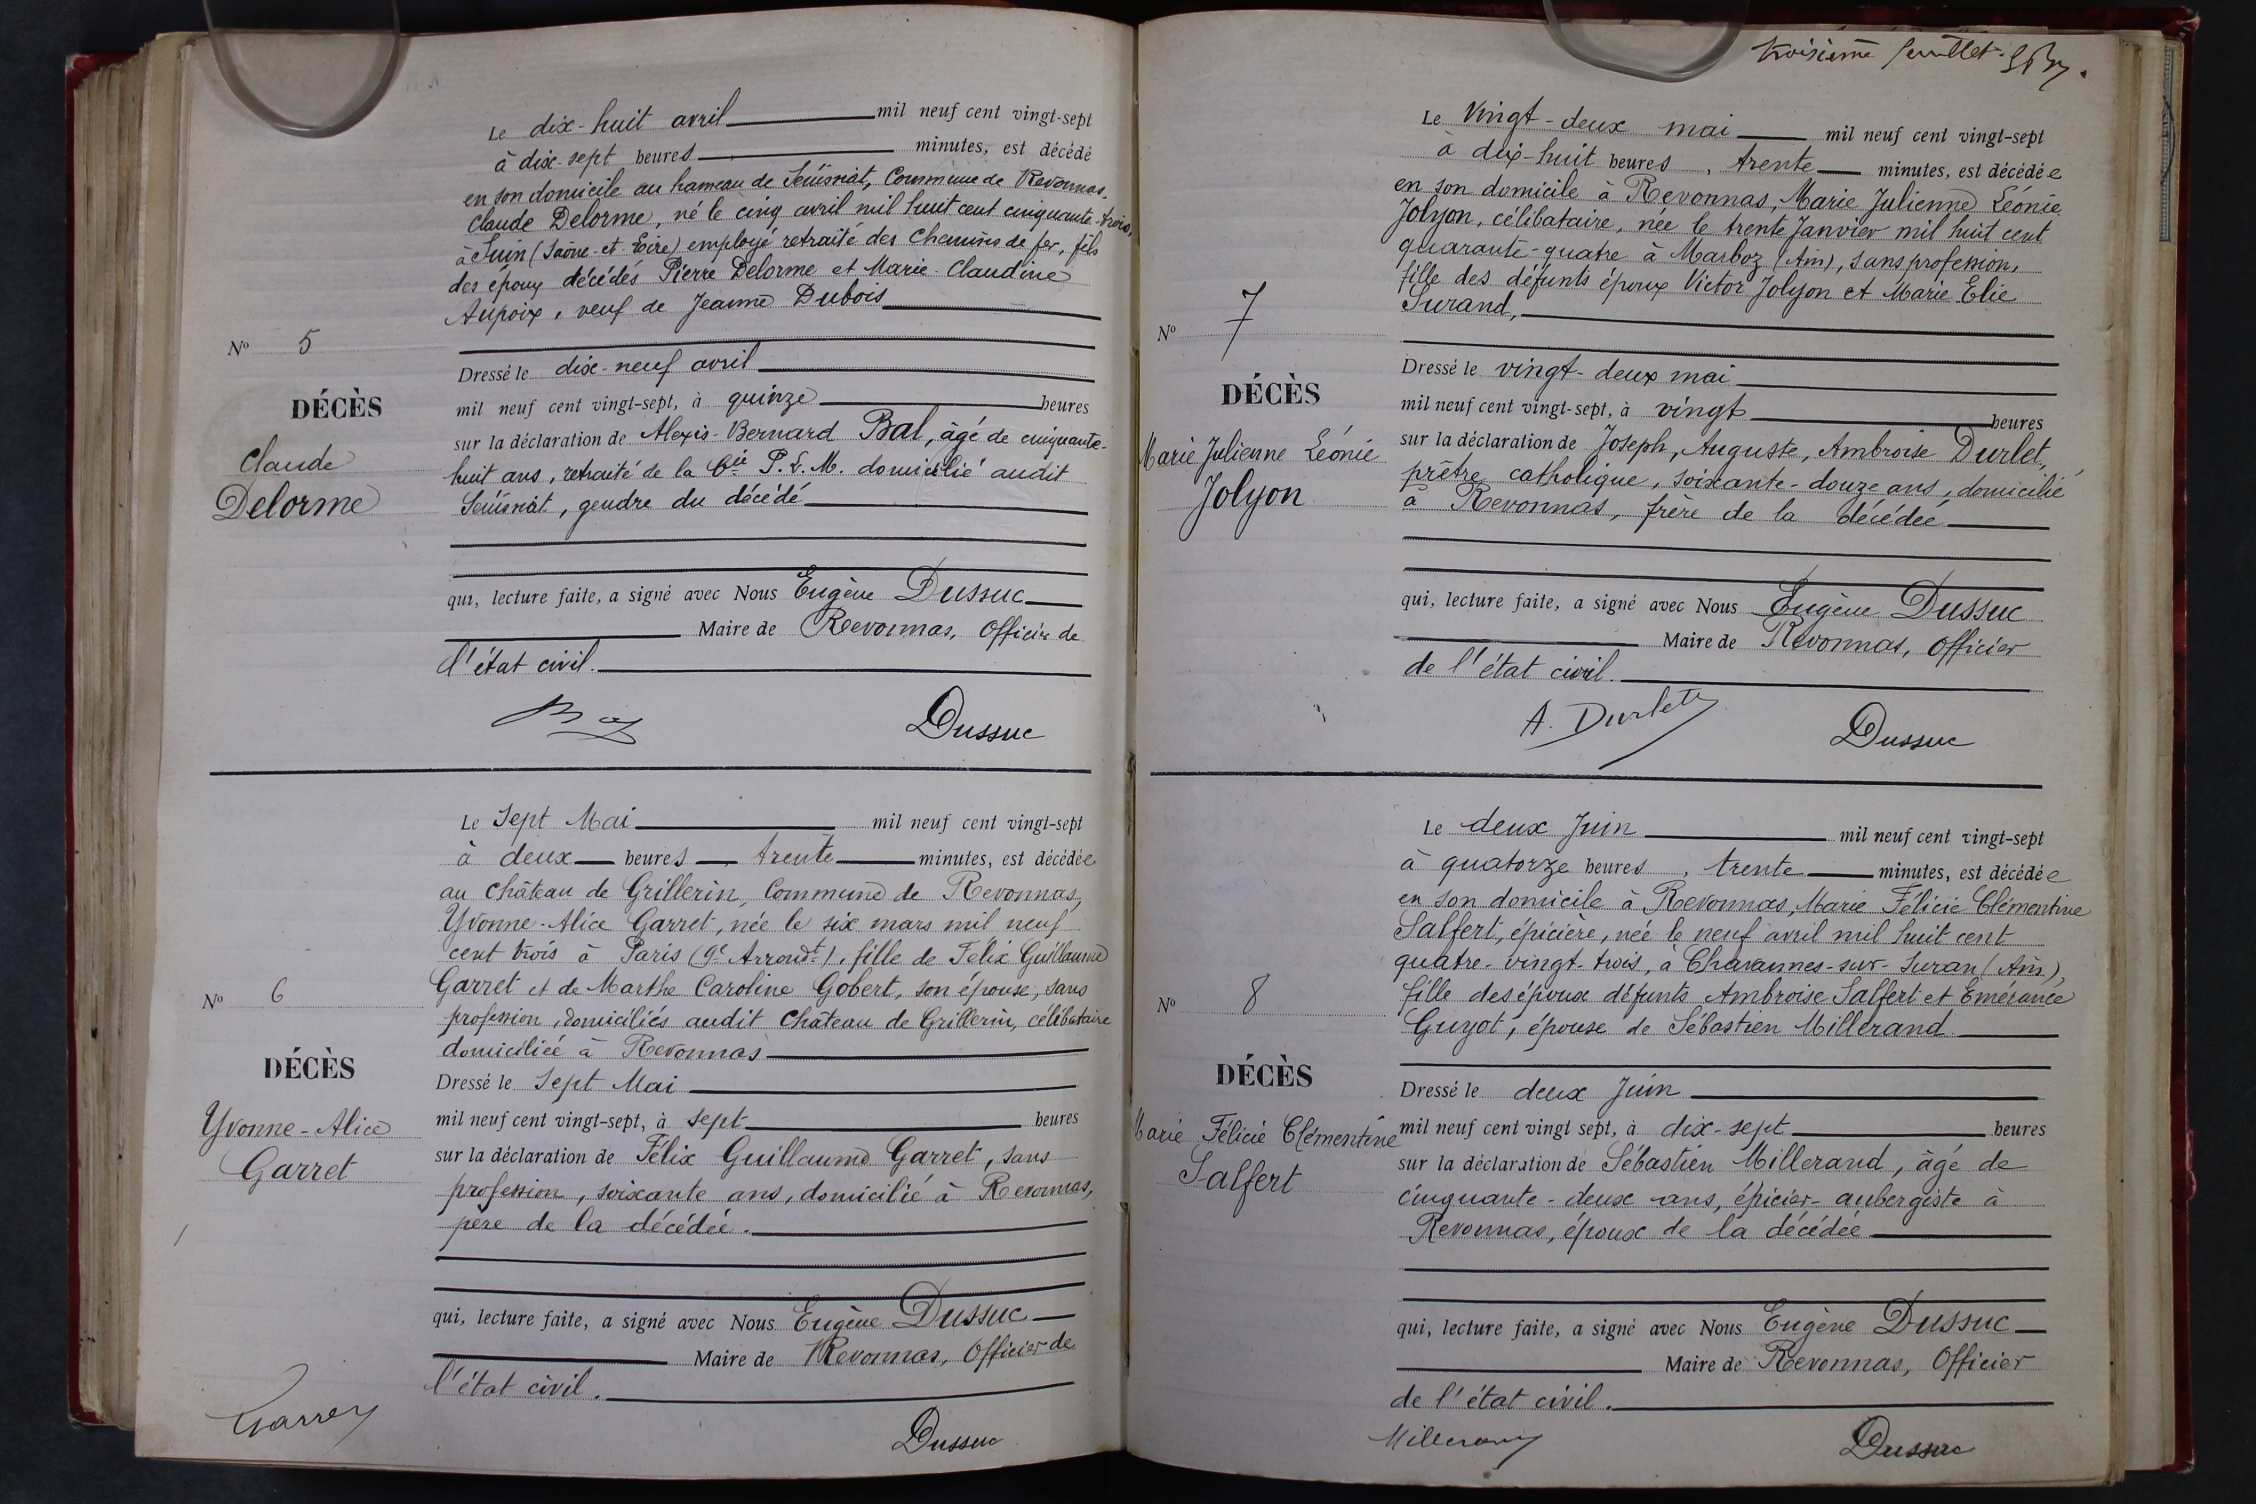 Le dix-huit avril mil neuf cent vingt-sept
à dix-sept heures minutes, est décédé
en son domicile au hameau de Senissiat, Commune de Revonnas,
Claude Delorme, né le cinq avril mil huit cent cinquante-trois,
à Suin (Saône-et-Loire) employé retraité des Chemins de fer, fils
des époux décédés Pierre Delorme et Marie-Claudine
Aupoix, veuf de Jeanne Dubois
No 5
Dressé le dix-neuf avril
DÉCÈS
mil neuf cent vingt-sept, à quinze heures
sur la déclaration de Alexis-Bernard Bal, âgé de cinquante-
Claude
huit ans, retraité de la Cie P.L.M. domicilié audit
Delorme
Senissiat, gendre du décédé
qui, lecture faite, a signé avec Nous Eugène Dussuc
Maire de Revonnas, Officier de
l'état civil.
Dussuc
Le Sept Mai mil neuf cent vingt-sept
à deux heures trente minutes, est décédée
au château de Grillerin, Commune de Revonnas,
Yvonne-Alice Garret, née le six mars mil neuf
cent trois à Paris (9e Arrondt), fille de Félix Guillaume
Garret et de Marthe Caroline Gobert, son épouse, sans
No 6
profession, domiciliés audit Château de Grillerin, célibataire
domiciliée à Revonnas
DÉCÈS
Dressé le Sept Mai
mil neuf cent vingt-sept, à sept heures
Yvonne-Alice
sur la déclaration de Félix Guillaume Garret, sans
Garret
profession, soixante ans, domicilié à Revonnas,
père de la décédée.
qui, lecture faite, a signé avec Nous Eugène Dussuc
Maire de Revonnas, Officier de
l'état civil.
Garret
Dussuc
troisième feuillet.
Le Vingt-deux mai mil neuf cent vingt-sept
à dix-huit heures, trente minutes, est décédée
en son domicile à Revonnas, Marie Julienne Léonie
Jolyon, célibataire, née le trente Janvier mil huit cent
quarante-quatre à Marboz (Ain), sans profession,
fille des défunts époux Victor Jolyon et Marie Elie
Surand,
No 7
Dressé le vingt-deux mai
DÉCÈS
mil neuf cent vingt-sept, à vingt heures
Marie Julienne Léonie
sur la déclaration de Joseph, Auguste, Ambroise Durlet,
prêtre catholique, soixante-douze ans, domicilié
Jolyon
à Revonnas, frère de la décédée
qui, lecture faite, a signé avec Nous Eugène Dussuc
Maire de Revonnas, Officier
de l'état civil.
A. Durlet
Dussuc
Le deux Juin mil neuf cent vingt-sept
à quatorze heures, trente minutes, est décédée
en son domicile à Revonnas, Marie Félicie Clémentine
Salfert, épicière, née le neuf avril mil huit cent
quatre-vingt-trois, à Chavannes-sur-Suran (Ain),
fille des époux défunts Ambroise Salfert et Emérance
No 8
Guyot, épouse de Sébastien Millerand
DÉCÈS
Dressé le deux Juin
Marie Félicie Clémentine
mil neuf cent vingt sept, à dix-sept heures
Salfert
sur la déclaration de Sébastien Millerand, âgé de
cinquante-deux ans, épicier-aubergiste à
Revonnas, époux de la décédée
qui, lecture faite, a signé avec Nous Eugène Dussuc
Maire de Revonnas, Officier
de l'état civil.
Millerand
Dussuc